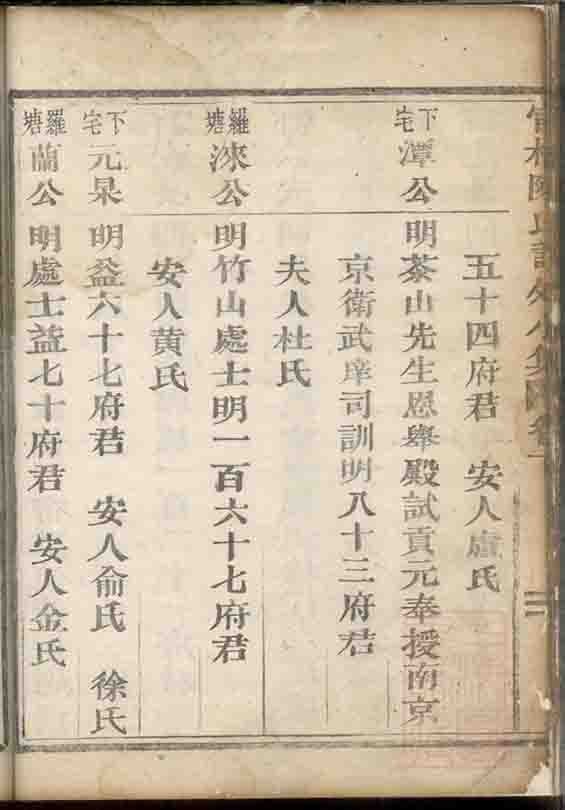 五十四府君 安人盧氏
下宅 潭公 明茶山先生恩舉殿試貢元奉授南京
京衛武庠司訓明八十三府君
夫人杜氏
羅塘 淶公 明竹山處士明一百六十七府君
安人黄氏
下宅 元杲 明益六十七府君 安人俞氏 徐氏
羅塘 蘭公 明處士益七十府君 安人金氏